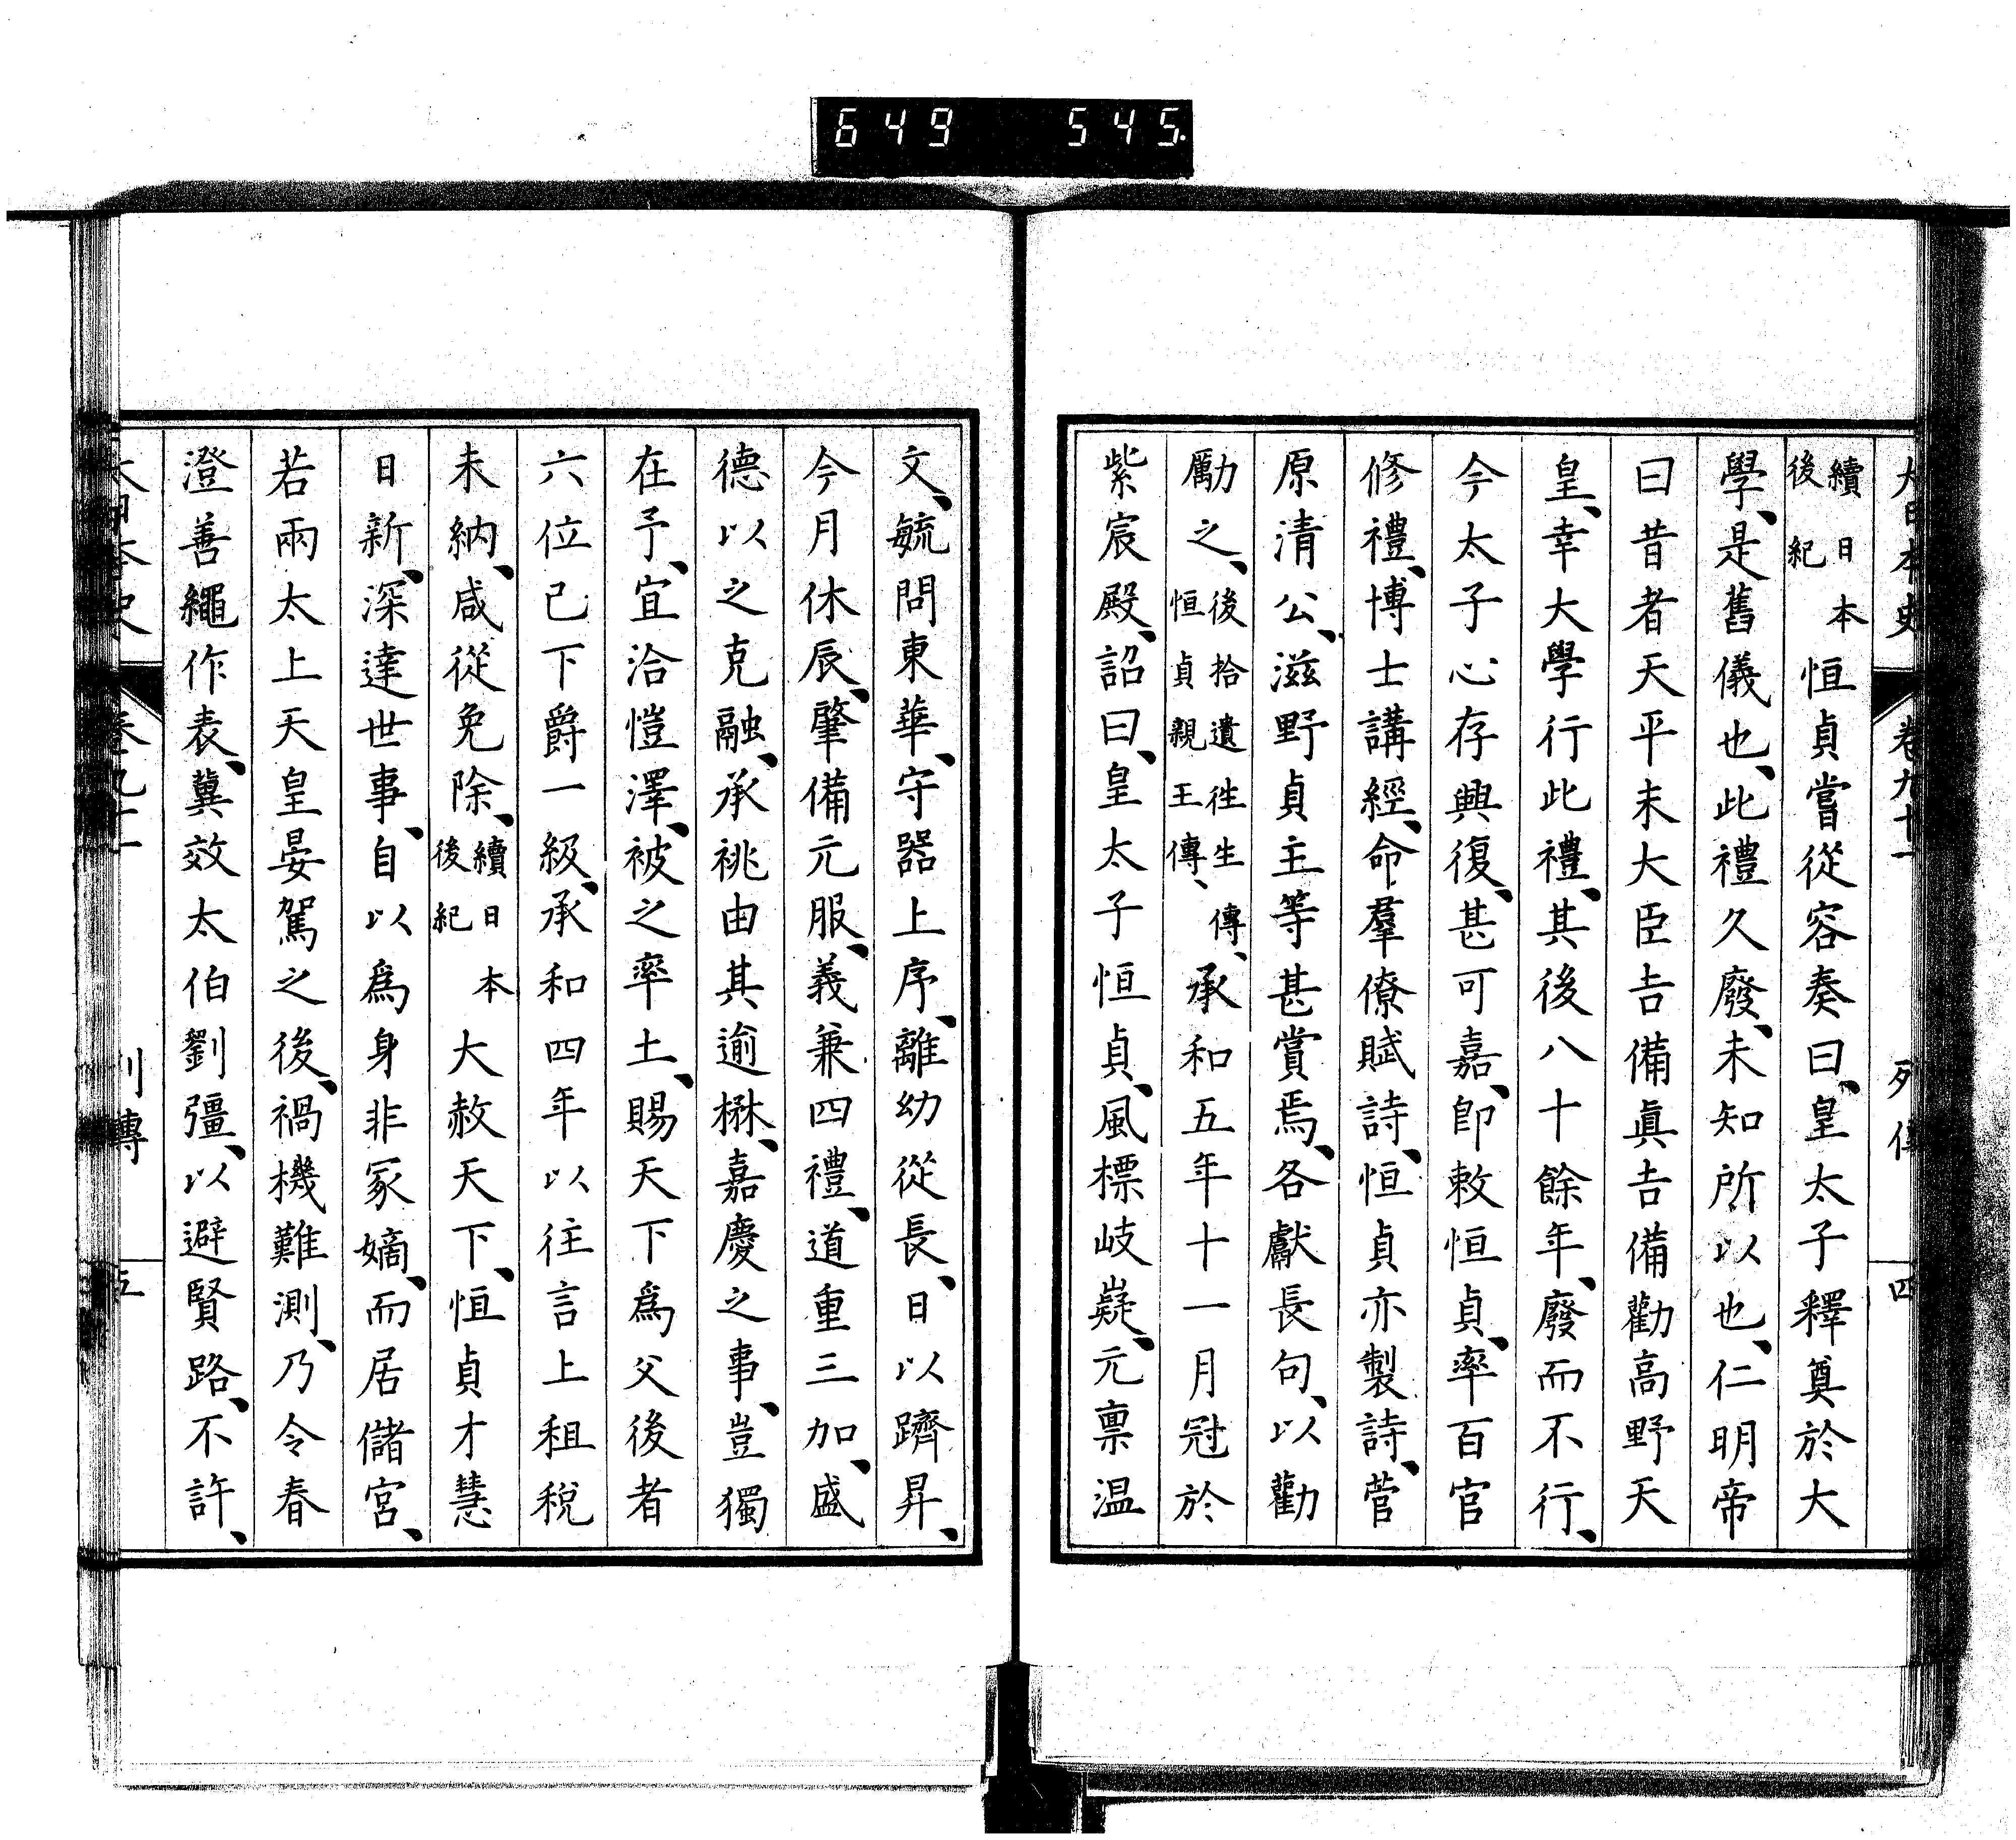 649 545
大日本史 卷九十一 列傳 四
續日本後紀 恒貞嘗從容奏曰、皇太子釋奠於大
學、是舊儀也、此禮久廢、未知所以也、仁明帝
曰昔者天平末大臣吉備眞吉備勸高野天
皇、幸大學行此禮、其後八十餘年、廢而不行、
今太子心存興復、甚可嘉、卽敕恒貞、率百官
修禮、博士講經、命羣僚賦詩、恒貞亦製詩、菅
原清公、滋野貞主等甚賞焉、各獻長句、以勸
勵之、後拾遺往生傳、恒貞親王傳、承和五年十一月冠於
紫宸殿、詔曰、皇太子恒貞、風標岐嶷、元禀温
文、毓問東華、守器上序、離幼從長、日以躋昇、
今月休辰、肇備元服、義兼四禮、道重三加、盛
德以之克融、承祧由其逾楙、嘉慶之事、豈獨
在予、宜洽愷澤、被之率土、賜天下爲父後者
六位已下爵一級、承和四年以往言上租稅
未納、咸從免除、續日本後紀 大赦天下、恒貞才慧
日新、深達世事、自以爲身非冢嫡、而居儲宮、
若兩太上天皇晏駕之後、禍機難測、乃令春
澄善繩作表、冀效太伯劉彊、以避賢路、不許、
大日本史 卷九十一 列傳 五